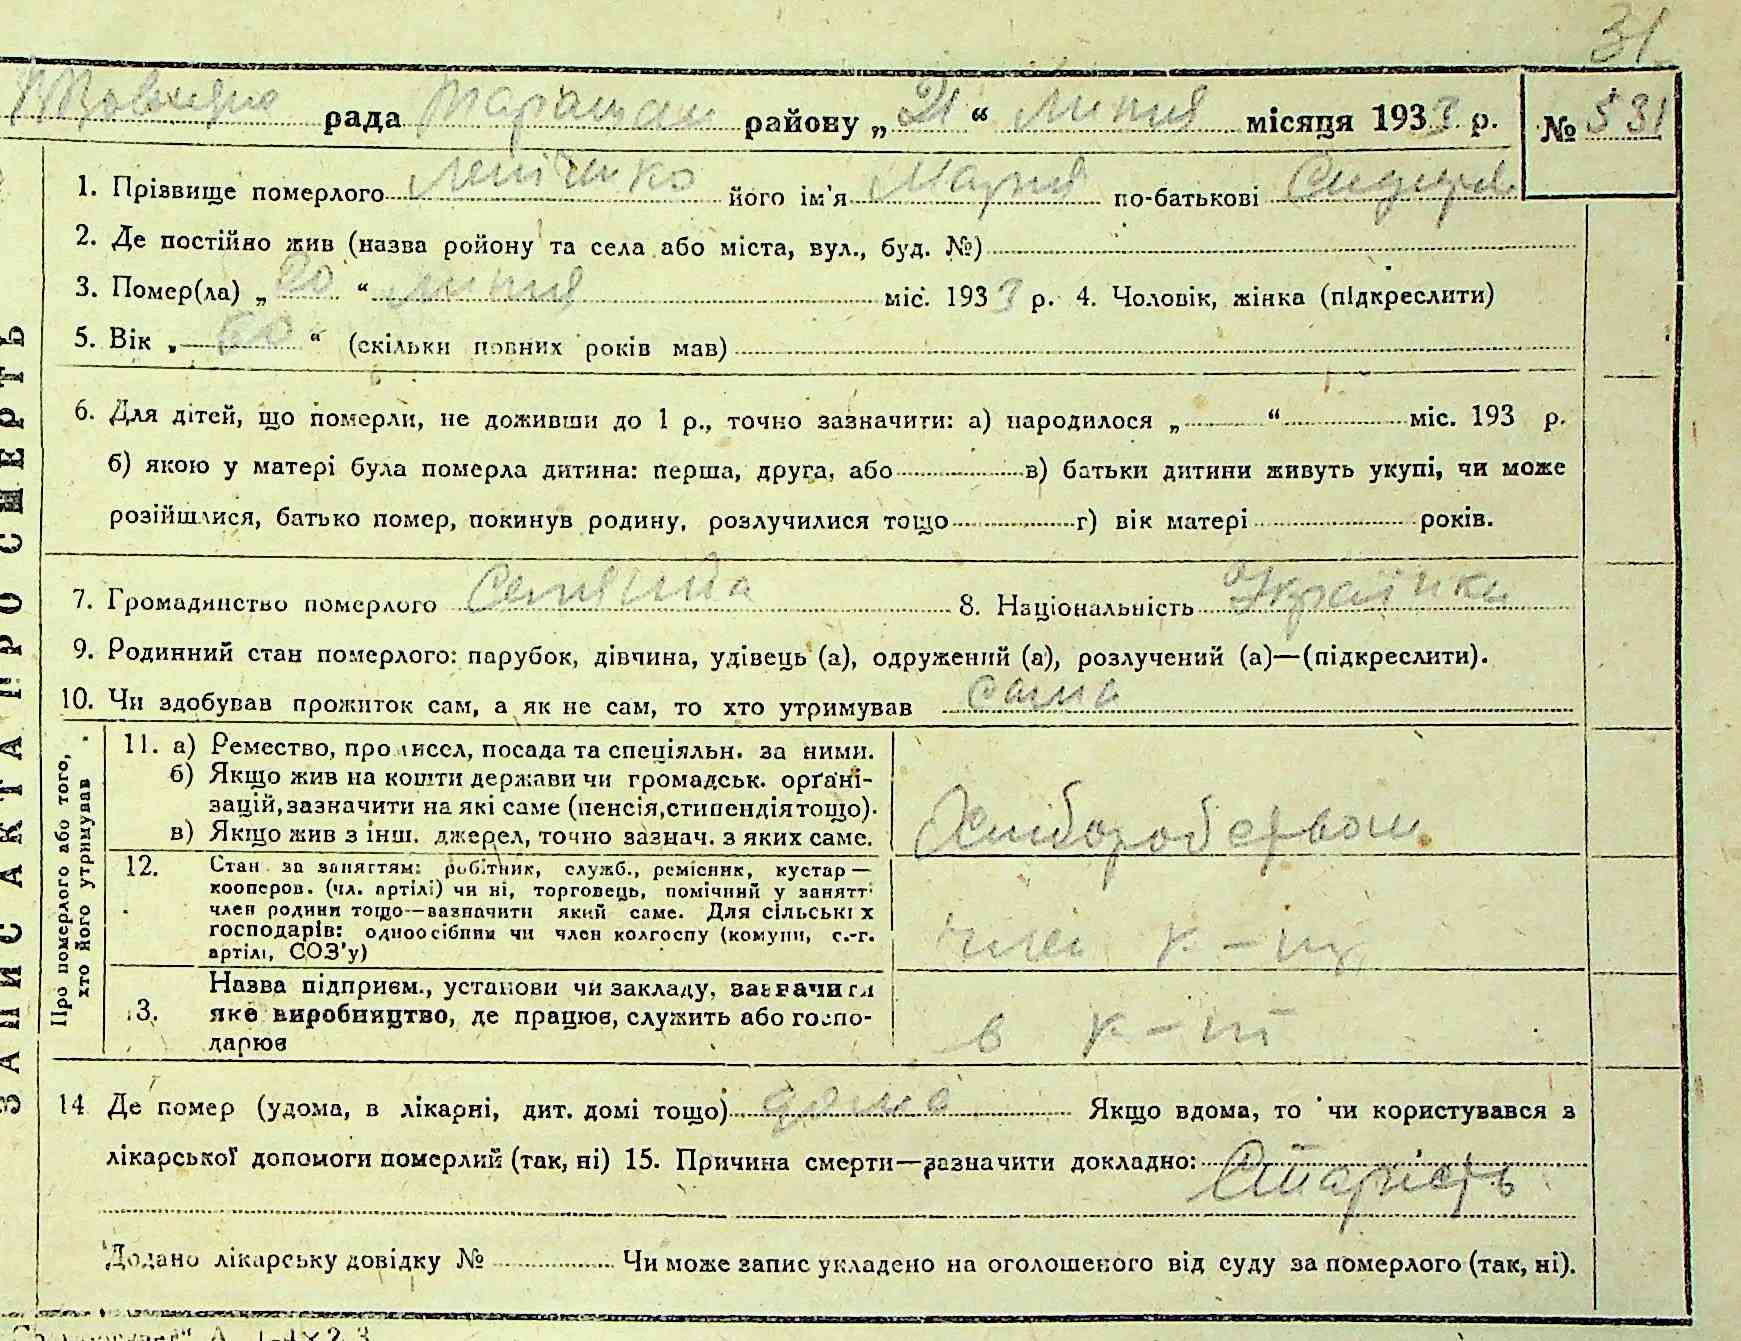 31
рада Таращан району „21“ Липня місяця 1933 р. № 531
1. Прізвище померлого його ім'я Мария по-батькові Сидоров
2. Де постійно жив (назва ройону та села або міста, вул., буд. №)
3. Помер(ла) „20“ липня міс. 1933 р. 4. Чоловік, жінка (підкреслити)
5. Вік „60“ (скільки повних років мав)
6. Для дітей, що померли, не доживши до 1 р., точно зазначити: а) народилося „ “ міс. 193 р.
б) якою у матері була померла дитина: перша, друга, або в) батьки дитини живуть укупі, чи може
розійшлися, батько помер, покинув родину, розлучилися тощо г) вік матері років.
7. Громадянство померлого Селянка 8. Національність Українка
9. Родинний стан померлого: парубок, дівчина, удівець (а), одружений (а), розлучений (а)—(підкреслити).
10. Чи здобував прожиток сам, а як не сам, то хто утримував сама
Про померлого або того,
хто його утримував
11. а) Ремество, професл, посада та спеціяльн. за ними.
б) Якщо жив на кошти держави чи громадськ. орґані-
зацій, зазначити на які саме (пенсія, стипендія тощо).
в) Якщо жив з інш. джерел, точно зазнач. з яких саме.
Хліборобством
12. Стан за заняттям: робітник, служб., ремісник, кустар —
кооперов. (чл. артілі) чи ні, торговець, помічний у занятті
член родини тощо—зазначити який саме. Для сільських
господарів: одноосібний чи член колгоспу (комуни, с.-г.
артілі, СОЗ'у)
член к-пу
13. Назва підприєм., установи чи закладу, зазначити
яке виробництво, де працює, служить або госпо-
дарює
в к-пі
14 Де помер (удома, в лікарні, дит. домі тощо) дома Якщо вдома, то чи користувався з
лікарської допомоги померлий (так, ні) 15. Причина смерти—зазначити докладно:
Старість
Додано лікарську довідку № Чи може запис укладено на оголошеного від суду за померлого (так, ні).
ЗАПИС АКТА ПРО СМЕРТЬ